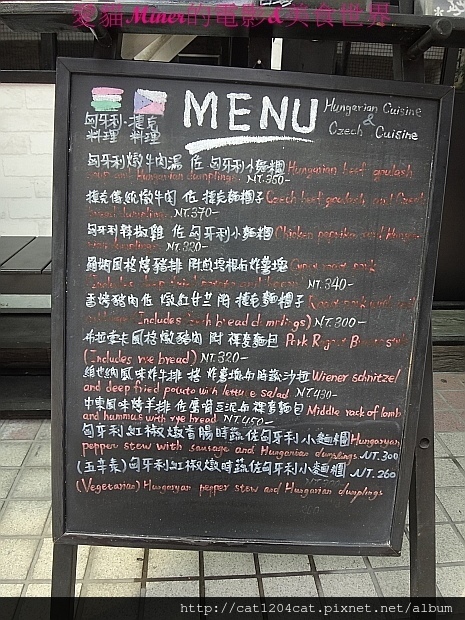 愛貓Miner的電影&美食世界
匈牙利·捷克
料理 料理
MENU
Hungarian Cuisine
&
Czech Cuisine
匈牙利燉牛肉湯 佐 匈牙利小麵糰 Hungarian beef goulash
Soup and Hungarian dumplings. NT.350-
捷克傳統燉牛肉 佐 捷克麵糰子 Czech beef goulash and Czech
bread dumplings. NT.370-
匈牙利 椒雞 佐 匈牙利小麵糰 Chicken paprika and
dumplings. NT.320-
風格烤豬排 附 與炸薯塊
NT.340-
烤豬肉佐 燉 甘藍 附 捷克麵糰子
(Includes Czech bread dumplings) NT.300-
風格燉豬肉 附 裸麥麵包 Pork Ragout
(Includes rye bread) NT.320-
維也納風味炸牛排 搭 炸薯塊與時蔬沙拉 Wiener schnitzel
and deep fried potato with lettuce salad NT.430-
中東風味烤羊排 佐 豆泥與裸麥麵包 Middle rack of lamb
and hummus with rye bread NT.450-
匈牙利紅椒燉香腸時蔬佐匈牙利小麵糰 Hungaryan
pepper stew with sausage and Hungarian dumplings NT.300
(五辛素)匈牙利紅椒燉時蔬佐匈牙利小麵糰 NT.260
(Vegetarian) Hungaryan pepper stew and Hungarian dumplings
http://cat1204cat.pixnet.net/album